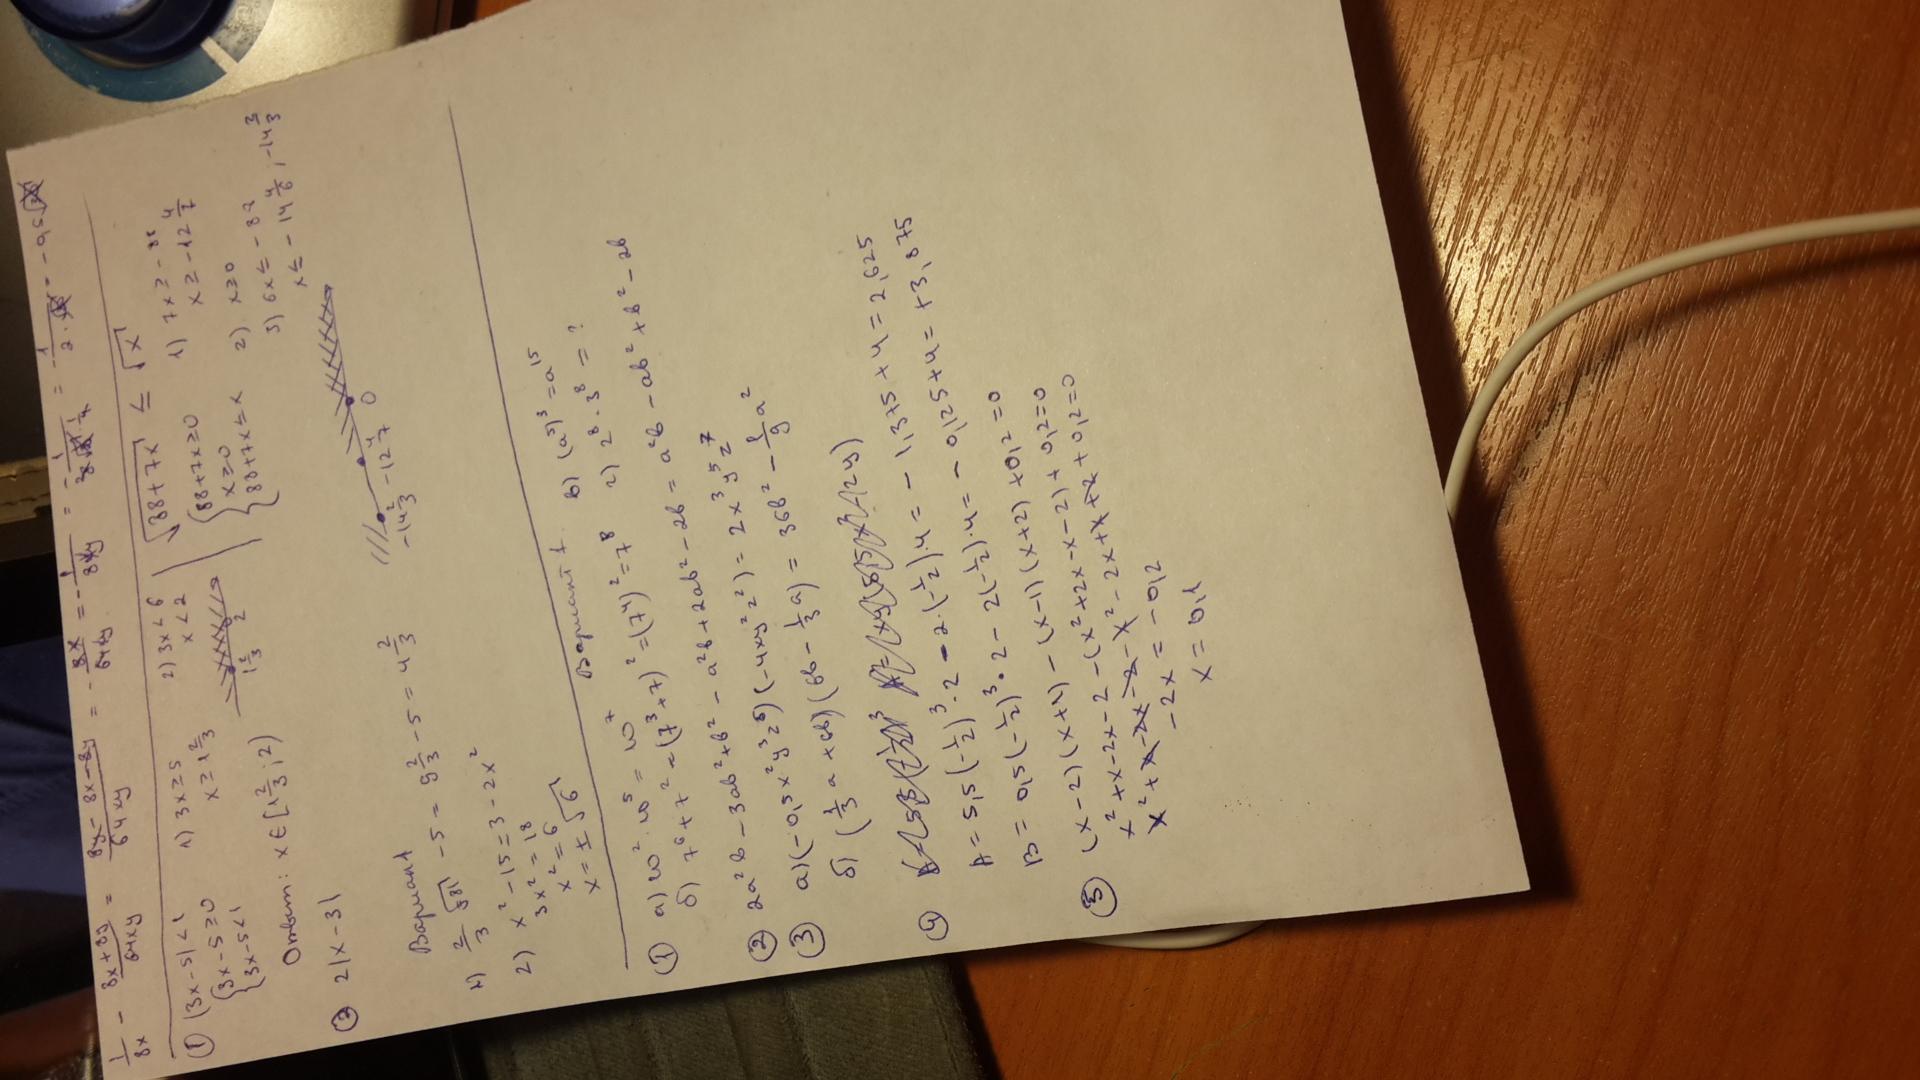 1/8x - 8x+8y/64xy = 8y-8x-8y/64xy = - 8x/64xy = - 1/8y = - 1/2 = -0,5
① |3x-5|<1
{3x-5≥0
{3x-5<1
1) 3x≥5
x≥1 2/3
2) 3x<6
x<2
1 2/3 2
Ответ: x∈[1 2/3; 2)
√88+7x ≤ √x
{88+7x≥0
x≥0
{88+7x≤x
1) 7x≥-88
x≥-12 4/7
2) x≥0
3) 6x≤-88
x≤-14 4/6; -14 2/3
② 2|x-3|
-14 2/3 -12 4/7 0
Вариант
1) 2/3 √81 - 5 = 9 2/3 - 5 = 4 2/3
2) x²-15=3-2x²
3x²=18
x²=6
x=±√6
Вариант 1.
① а) 10²·10⁵=10⁷
б) 7⁶+7²=(7³+7)²=(7⁴)²=7⁸
в) (a⁵)³=a¹⁵
г) 2⁸·3⁸=?
② 2a²b-3ab²+b²-a²b+2ab²-2b=a²b-ab²+b²-2b
③ а) (-0,5x²y³z⁵)(-4xy²z²)=2x³y⁵z⁷
б) (1/3a+6b)(6b-1/3a)=36b²-1/9a²
④
A=5,5(-1/2)³·2-2·(-1/2)·4=-1,375+4=2,625
B=0,5(-1/2)³·2-2(-1/2)·4=-0,125+4=+3,875
⑤ (x-2)(x+1)-(x-1)(x+2)+0,2=0
x²+x-2x-2-(x²+2x-x-2)+0,2=0
x²+x-2x-2-x²-2x+x+2+0,2=0
-2x=-0,2
x=0,1